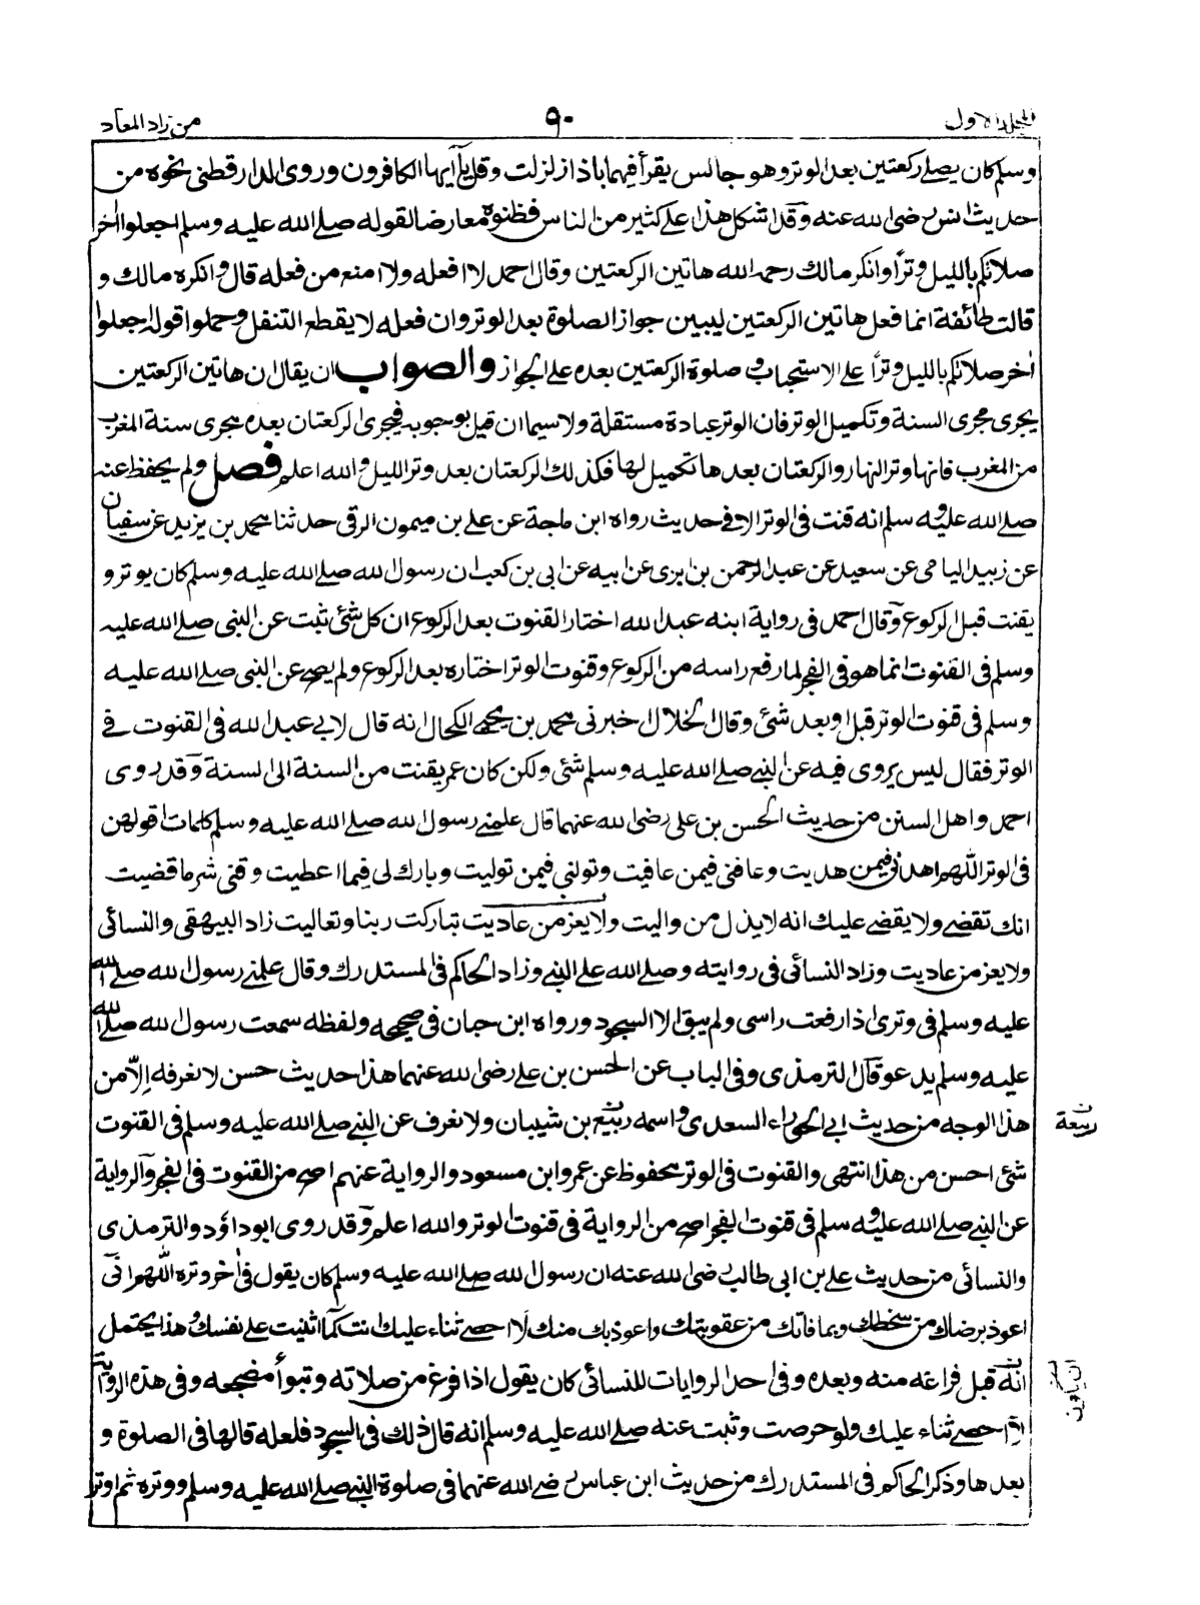 المجلد الاول
٩٠
من زاد المعاد
وسلم كان يصلے ركعتين بعد الوتر وهو جالس يقرأ فيهما باذا زلزلت وقل يأيها الكافرون وروى الدارقطنى نحوه من
حديث انس رضى الله عنه وقد اشكل هذا علے كثير من الناس فظنوه معارضا لقوله صلے الله عليه وسلم اجعلوا اٰخر
صلاتكم بالليل وتراً وانكر مالك رحمه الله هاتين الركعتين وقال احمد لا افعله ولا امنع من فعله قال وانكره مالك و
قالت طائفة انما فعل هاتين الركعتين ليبين جواز الصلوة بعد الوتر وان فعله لا يقطع التنفل وحملوا قوله اجعلوا
اٰخر صلاتكم بالليل وتراً علے الاستحباب و صلوة الركعتين بعده علے الجواز والصواب ان يقال ان هاتين الركعتين
يجرى مجرى السنة وتكميل الوتر فان الوتر عبادة مستقلة ولا سيما ان قيل بوجوبه فيجرى الركعتان بعده مجرى سنة المغرب
من المغرب فانها وتر النهار والركعتان بعدها تكميل لها فكذلك الركعتان بعد وتر الليل والله اعلم فصل ولم يحفظ عنه
صلے الله عليه وسلم انه قنت فى الوتر الا فے حديث رواه ابن ماجة عن علے بن ميمون الرقى حدثنا محمد بن يزيد عن سفيان
عن زبيد اليامى عن سعيد عن عبد الرحمن بن ابزى عن ابيه عن ابى بن كعب ان رسول الله صلے الله عليه وسلم كان يوتر و
يقنت قبل الركوع وقال احمد فى رواية ابنه عبد الله اختار القنوت بعد الركوع ان كل شئ ثبت عن النبى صلے الله عليه
وسلم فى القنوت انما هو فى الفجر لما رفع راسه من الركوع وقنوت الوتر اختاره بعد الركوع ولم يصح عن النبى صلے الله عليه
وسلم فى قنوت الوتر قبل او بعد شئ وقال الخلال اخبرنى محمد بن يحيى الكحال انه قال لابى عبد الله فى القنوت فے
الوتر فقال ليس يروى فيه عن النبے صلے الله عليه وسلم شئ ولكن كان عمر يقنت من السنة الى السنة وقد روى
احمد واهل السنن من حديث الحسن بن على رضى الله عنهما قال علمنے رسول الله صلے الله عليه وسلم كلمات اقولهن
فى الوتر اللهم اهدنى فيمن هديت وعافنى فيمن عافيت وتولنى فيمن توليت وبارك لى فيما اعطيت وقنى شر ما قضيت
انك تقضے ولا يقضے عليك انه لا يذل من واليت ولا يعز من عاديت تباركت ربنا وتعاليت زاد البيهقى والنسائى
ولا يعز من عاديت وزاد النسائى فى روايته وصلے الله علے النبے وزاد الحاكم فى المستدرك وقال علمنے رسول الله صلے الله
عليه وسلم فى وترى اذا رفعت راسى ولم يبق الا السجود ورواه ابن حبان فى صحيحه ولفظه سمعت رسول الله صلے الله
عليه وسلم يدعو قال الترمذى وفى الباب عن الحسن بن علے رضى الله عنهما هذا حديث حسن لا نعرفه إلّا من
هذا الوجه من حديث ابى الحوراء السعدى واسمه ربيع بن شيبان ولا نعرف عن النبے صلے الله عليه وسلم فى القنوت
ربيعة
شئ احسن من هذا انتهى والقنوت فى الوتر محفوظ عن عمر وابن مسعود والرواية عنهم اصح من القنوت فى الفجر والرواية
عن النبے صلے الله عليه وسلم فى قنوت الفجر اصح من الرواية فى قنوت الوتر والله اعلم وقد روى ابو داؤد والترمذى
والنسائى من حديث علے بن ابى طالب رضى الله عنه ان رسول الله صلے الله عليه وسلم كان يقول فى اٰخر وتره اللهم انى
اعوذ برضاك من سخطك وبمعافاتك من عقوبتك واعوذ بك منك لا احصے ثناء عليك انت كما اثنيت على نفسك وهذا يحتمل
انه قبل فراغه منه وبعده وفى احد الروايات للنسائى كان يقول اذا فرغ من صلاته وتبوأ مضجعه وفى هذه الرواية
ان يكون
لا احصے ثناء عليك ولو حرصت وثبت عنه صلے الله عليه وسلم انه قال ذلك فى السجود فلعله قالها فى الصلوة و
بعدها وذكر الحاكم فى المستدرك من حديث ابن عباس رضے الله عنهما فى صلوة النبے صلے الله عليه وسلم ووتره ثم اوتر